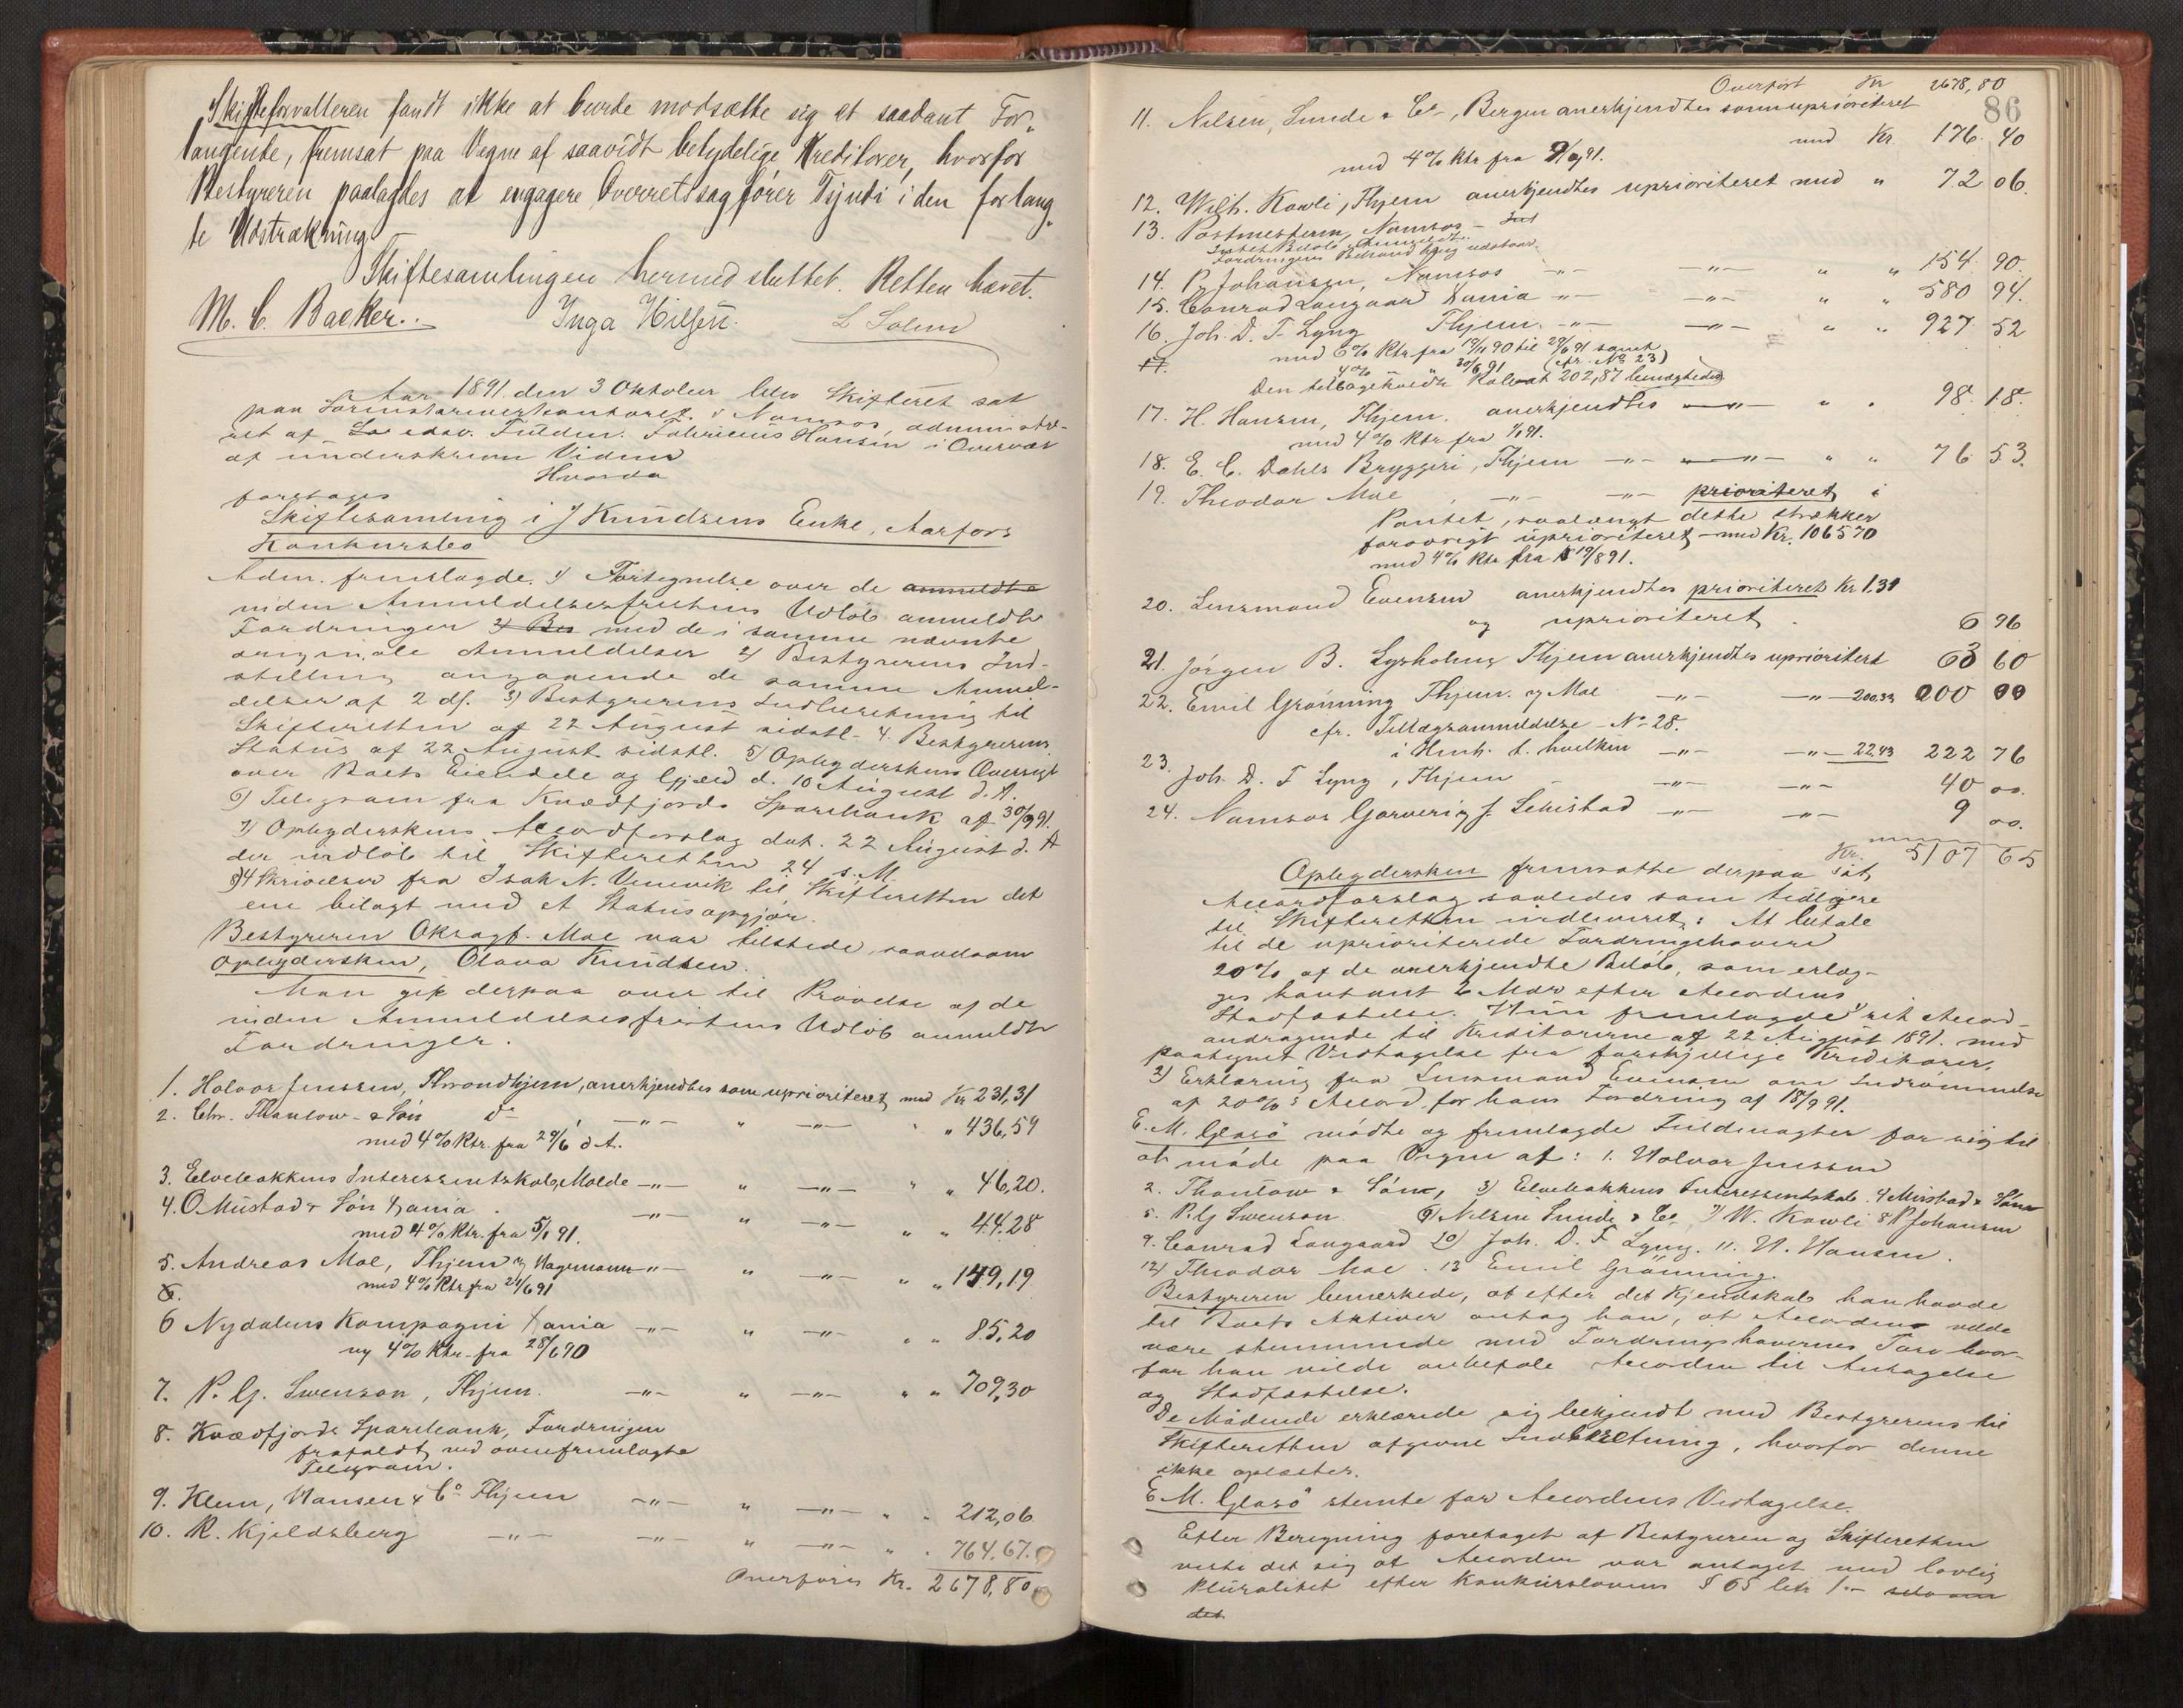 Skifteforvalteren fandt ikke at burde modsætte sig et saadant For„
langende, fremsat paa Vegne af saavidt betydelige Kreditorer, hvorfor
Bestyreren paalagdes at engagere Overretssagfører Tyndi i den forlang„
te Udstrækning.
Skiftesamlingen hermed sluttet. Retten hævet.
M. C. Backer. Inga Hilsen. L Solem
Aar 1891 den 3 Oktober blev Skifteret sat
paa Sorenskriverkontoret i Namsos, administre-
ret af edsv. Fuldm. Fabricius Hansen i Overvær
af underskrevne Vidner
Hvorda
foretages
Skiftesamling i J Knudsens Enke, Aarfors
Konkursbo
Adm. fremlagde. 1) Fortegnelse over de anmeldte
inden Anmeldelsesfristens Udløb anmeldte
Fordringer 2) Bes med de i samme nævnte
originale Anmeldelser 2) Bestyrerens Ind-
stilling angaaende de samme Anmel-
delser af 2 ds. 3) Bestyrerens Indberetning til
Skifteretten af 22 August sidstl. 4. Bestyrerens
Status af 22 August sidstl. 5) Opbyderskens Oversigt
over Boets Eiendele og Gjæld d. 10 August d. A.
6) Telegram fra Kvædfjords Sparebank af 30/9 91.
7) Opbyderskens Accordforslag dat. 22 August d. A
der indløb til Skifteretten 24 s. M.
8) 4 Skrivelser fra Isak N. Vennevik til Skifteretten det
ene bilagt med et Statusopgjør.
Bestyreren Oksagf. Moe var tilstede saavelsom
Opbydersken, Olava Knudsen.
Man gik derpaa over til Prøvelse af de
inden Anmeldelsesfristens Udløb anmeldte
Fordringer.
1. Halvor Jenssen, Throndhjem, anerkjendtes som uprioriteret med Kr 231,31
2. Chr. Thaulow & Søn do, —"— " —"— " " 436,59
med 4% Rtr. fra 29/6 d A.
3. Elvebakkens Interessentskab, Molde —"— " —"— " " 46,20.
4. O Mustad & Søn Xania. —"— " —"— " " 44.28
med 4% Rtr. fra 5/1 91.
5. Andreas Moe, Thjem v Hagemann —"— " —"— " " 149,19
6. med 4% Rtr fra 24/6 91
6 Nydalens Kompagni Xania —"— " —"— " " 85,20
og 4% Rtr. fra 28/6 90
7. P. G. Svenson, Thjem. —"— " —"— " " 709,30
8. Kvædfjords Sparebank, Fordringen
frafaldt ved ovenfremlagte
Telegram.
9. Klem, Hansen & Co Thjem —"— " —"— " " 212,06
10. R. Kjeldsberg —"— —"— " —"— " " 764.67.
Overføres Kr. 2678,80
Overført Kr 2678,80
86
11. Nilsen, Lunde & Co, Bergen anerkjendtes som uprioriteret
med Kr. 176. 40
med 4% Rtr fra 9/9 91.
12. Wilh. Kowli, Thjem anerkjendtes uprioriteret med " 72 06.
13. Postmesteren, Namsos – Int
Intet Beløb Anmeldt.
Fordringens Behandling udstaar.
14. P. Johansen, Namsos —"— —"— " " 154. 90.
15. Conrad Langaard Xania —"— —"— " " 580 94.
16. Joh. D. F. Lyng Thjem. —"— —"— " " 927. 52
med 6% Rtr fra 19/11 90 til 29/6 91 samt
17. 4% " " 30/6 91 (cfr. No 23)
Den tilbageholdte Rabat 202,87 benægtedes
17. H. Hansen, Thjem. anerkjendtes —"— " " 98. 18.
med 4% Rtr fra 1/1 91.
18. E. C. Dahls Bryggeri, Thjem —"— —"— " " 76 53.
19. Theodor Moe, —"— —"— prioriteret i
Pantet, saalangt dette strækker
forøvrigt uprioriteret – med Kr. 1065 70
med 4% Rtr fra 19/8 91.
20. Lensmand Evensen anerkjendtes prioriteret Kr 1,31
og uprioriteret. 6 96
21. Jørgen B. Lysholm, Thjem anerkjendtes uprioriteret 63 60
22. Emil Grønning Thjem. v Moe —"— —"— 200.33 200 00
cfr. Tillægsanmeldelse – No 28.
i Henh. t. hvilken —"— —"— 22.43 222 76
23. Joh. D. F Lyng, Thjem – —"— —"— 40 00.
24. Namsos Garveri v J. Sehistad —"— —"— 9 00.
Kr. 5107 65
Opbydersken fremsatte derpaa sit
Accordforslag saaledes som tidligere
til Skifteretten indleveret: At betale
til de uprioriterede Fordringshavere
20% af de anerkjendte Beløb, som erlæg-
ges kontant 2 Mdr efter Accordens
Stadfæstelse. Hun fremlagde 1) sit Accord-
andragende til Kreditorerne af 22 August 1891. med
paategnet Vedtagelse fra forskjellige Kreditorer.
2) Erklæring fra Lensmand Evensen om Indrømmelse
af 20%'s Accord for hans Fordring af 18/9 91.
E. M. Glasø mødte og fremlagde Fuldmagter for sig til
at møde paa Vegne af: 1. Halvor Jenssen
2. Thaulow & Søn, 3) Elvebakkens Interessentskab. 4 Mustad & Søn
5. P. G Svenson 6) Nilsen Lunde & Co, 7) W. Kowli 8 P Johansen
9. Conrad Langaard 10) Joh. D. F Lyng. 11. H. Hansen.
12) Theodor Moe. 13 Emil Grønning.
Bestyreren bemærkede, at efter det Kjendskab han havde
til Boets Aktiver antog han, at Accorden vilde
være stemmende med Fordringshavernes Tarv hvor-
for han vilde anbefale Accorden til Antagelse
og Stadfæstelse.
De Mødende erklærede sig bekjendt med Bestyrerens til
Skifteretten afgivne Indberetning, hvorfor denne
ikke oplæstes.
E M. Glasø stemte for Accordens Vedtagelse.
Efter Beregning foretaget af Bestyreren og Skifteretten
viste det sig at Accorden var antaget med lovlig
Pluralitet efter Konkurslovens § 65 litr 1 – selv om
det